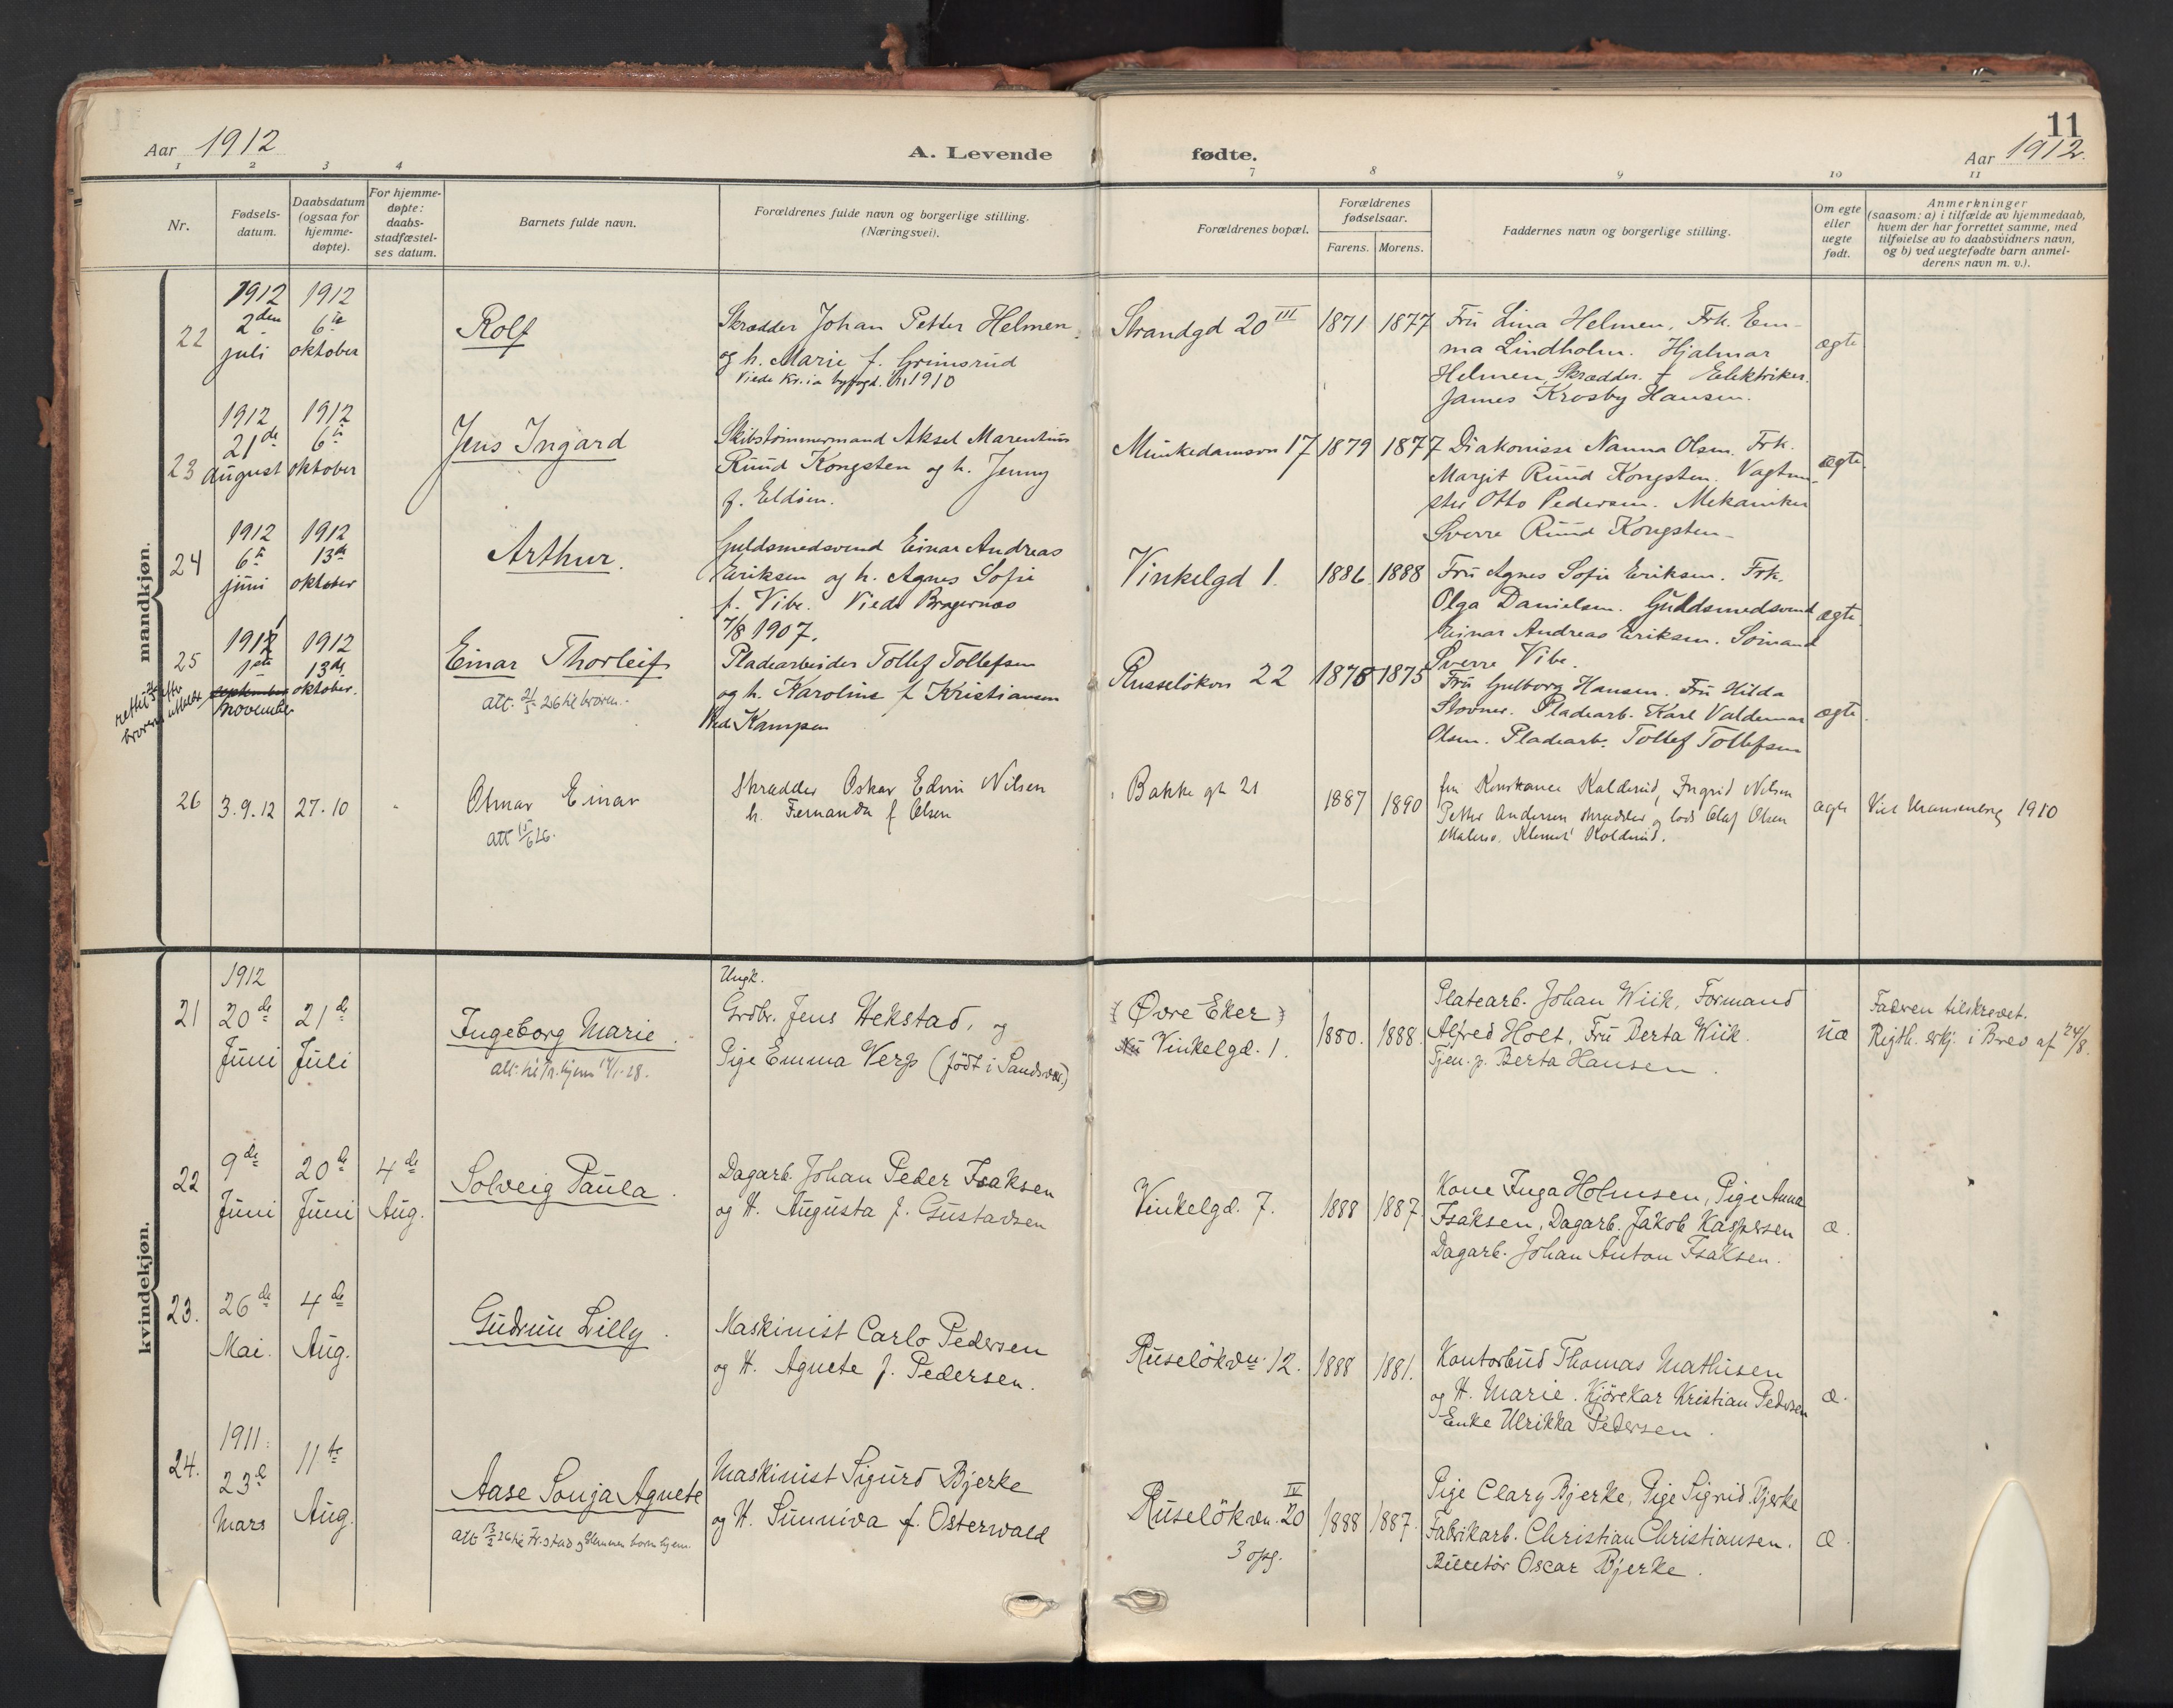 11
Aar 1912
A. Levende fødte.
Aar 1912.
1 2 3 4 7 8 9 10 11
Nr.
Fødsels-
datum.
Daabsdatum
(ogsaa for
hjemme-
døpte).
For hjemme-
døpte:
daabs-
stadfæstel-
ses datum.
Barnets fulde navn.
Forældrenes fulde navn og borgerlige stilling.
(Næringsvei).
Forældrenes bopæl.
Forældrenes
fødselsaar.
Farens. Morens.
Faddernes navn og borgerlige stilling.
Om egte
eller
uegte
født.
Anmerkninger
(saasom: a) i tilfælde av hjemmedaab,
hvem der har forrettet samme, med
tilføielse av to daabsvidners navn,
og b) ved uegtefødte barn anmel-
derens navn m. v.).
mandkjøn.
22
1912
2den
juli
1912
6te
oktober
Rolf
Skrædder Johan Petter Helmen
og h. Marie f. Grimsrud
Viede Kr.ia byfogd. 1910
Strandgd 20 III
1871 1877
Fru Lina Helmen, Frk. Em-
ma Lindholm. Hjalmar
Helmen, Skrædder. f Elektriker.
James Krosby Hansen.
ægte
23
1912
21de
august
1912
6te
oktober
Jens Ingard
Skibstømmermand Aksel Marentius
Ruud Kongsten og h. Jenny
f. Eldøen.
Munkedamsvn 17
1879 1877
Diakonisse Nanna Olsen. Frk.
Margit Ruud Kongsten. Vagtme-
ster Otto Pedersen. Mekaniker
Sverre Ruud Kongsten
ægte.
24
1912
6te
juni
1912
13de
oktober
Arthur.
Guldsmedsvend Einar Andreas
Eriksen og h. Agnes Sofie
f. Vibe. Viede Bragernæs
7/8 1907.
Vinkelgd 1.
1886. 1888
Fru Agnes Sofie Eriksen. Frk.
Olga Danielsen. Guldsmedsvend
Einar Andreas Eriksen. Sømand
Sverre Vibe.
ægte.
25
rettet efter
brorens
1911
1ste
september
november
1912
13de
oktober.
Einar Thorleif
att. 21/5 26 til broren.
Pladearbeider Tollef Tollefsen
og h. Karoline f Kristiansen
Viede Kampen
Russeløkvn 22
1878 1875
Fru Gulborg Hansen. Fru Hilda
Slovner. Pladearb. Karl Valdemar
Olsen. Pladearb. Tollef Tollefsen
ægte.
26
3.9.12
27.10
Otmar Einar
att 15/6 26.
Skrædder Oskar Edvin Nilsen
h. Fernanda f Olsen
Bakke gt 21
1887 1890
fru Konstance Kolderud, Ingrid Nilsen
Petter Andersen skrædder og lods Olaf Olsen
Kolderud.
ægte
Viet Uranienborg 1910
kvindekjøn.
21
1912
20de
Juni
21de
Juli
Ingeborg Marie.
att. til 17/1-28.
Ungk.
Grdbr. Jens Hekstad, og
Pige Emma Verp (født i Sandsvær)
(Øvre Eker)
Nu Vinkelgd. 1.
1880. 1888.
Platearb. Johan Wiik, Formand
Alfred Holt, Fru Berta Wiik
Tjen. p. Berta Hansen.
uæ
Faderen tilskrevet.
Rigth. erkj. i Brev af 24/8.
22
9de
Juni
20de
Juni
4de
Aug.
Solveig Paula.
Dagarb. Johan Peder Isaksen
og H. Augusta f. Gustavsen
Vinkelgd. 7.
1888 1887.
Kone Inga Holmsen, Pige Anna
Isaksen, Dagarb. Jakob Kaspersen
Dagarb. Johan Anton Isaksen.
æ.
23.
26de
Mai.
4de
Aug.
Gudrun Lilly.
Maskinist Carlo Pedersen
og H. Agnete f. Pedersen.
Ruseløkvn. 12.
1888 1881.
Kontorbud Thomas Mathisen
og H. Marie. Kjørekar Kristian Pedersen
Enke Ulrikka Pedersen.
æ.
24.
1911.
23de
Mars
11te
Aug.
Aase Sonja Agnete
att 13/2 26 til Fr.stad og Glemmen barnehjem.
Maskinist Sigurd Bjerke
og H. Sunniva f. Osterwald
Ruseløkvn. 20 IV
3 opg.
1888 1887.
Pige Clary Bjerke, Pige Sigrid Bjerke
Fabrikarb. Christian Christiansen.
Billettør Oscar Bjerke.
æ.